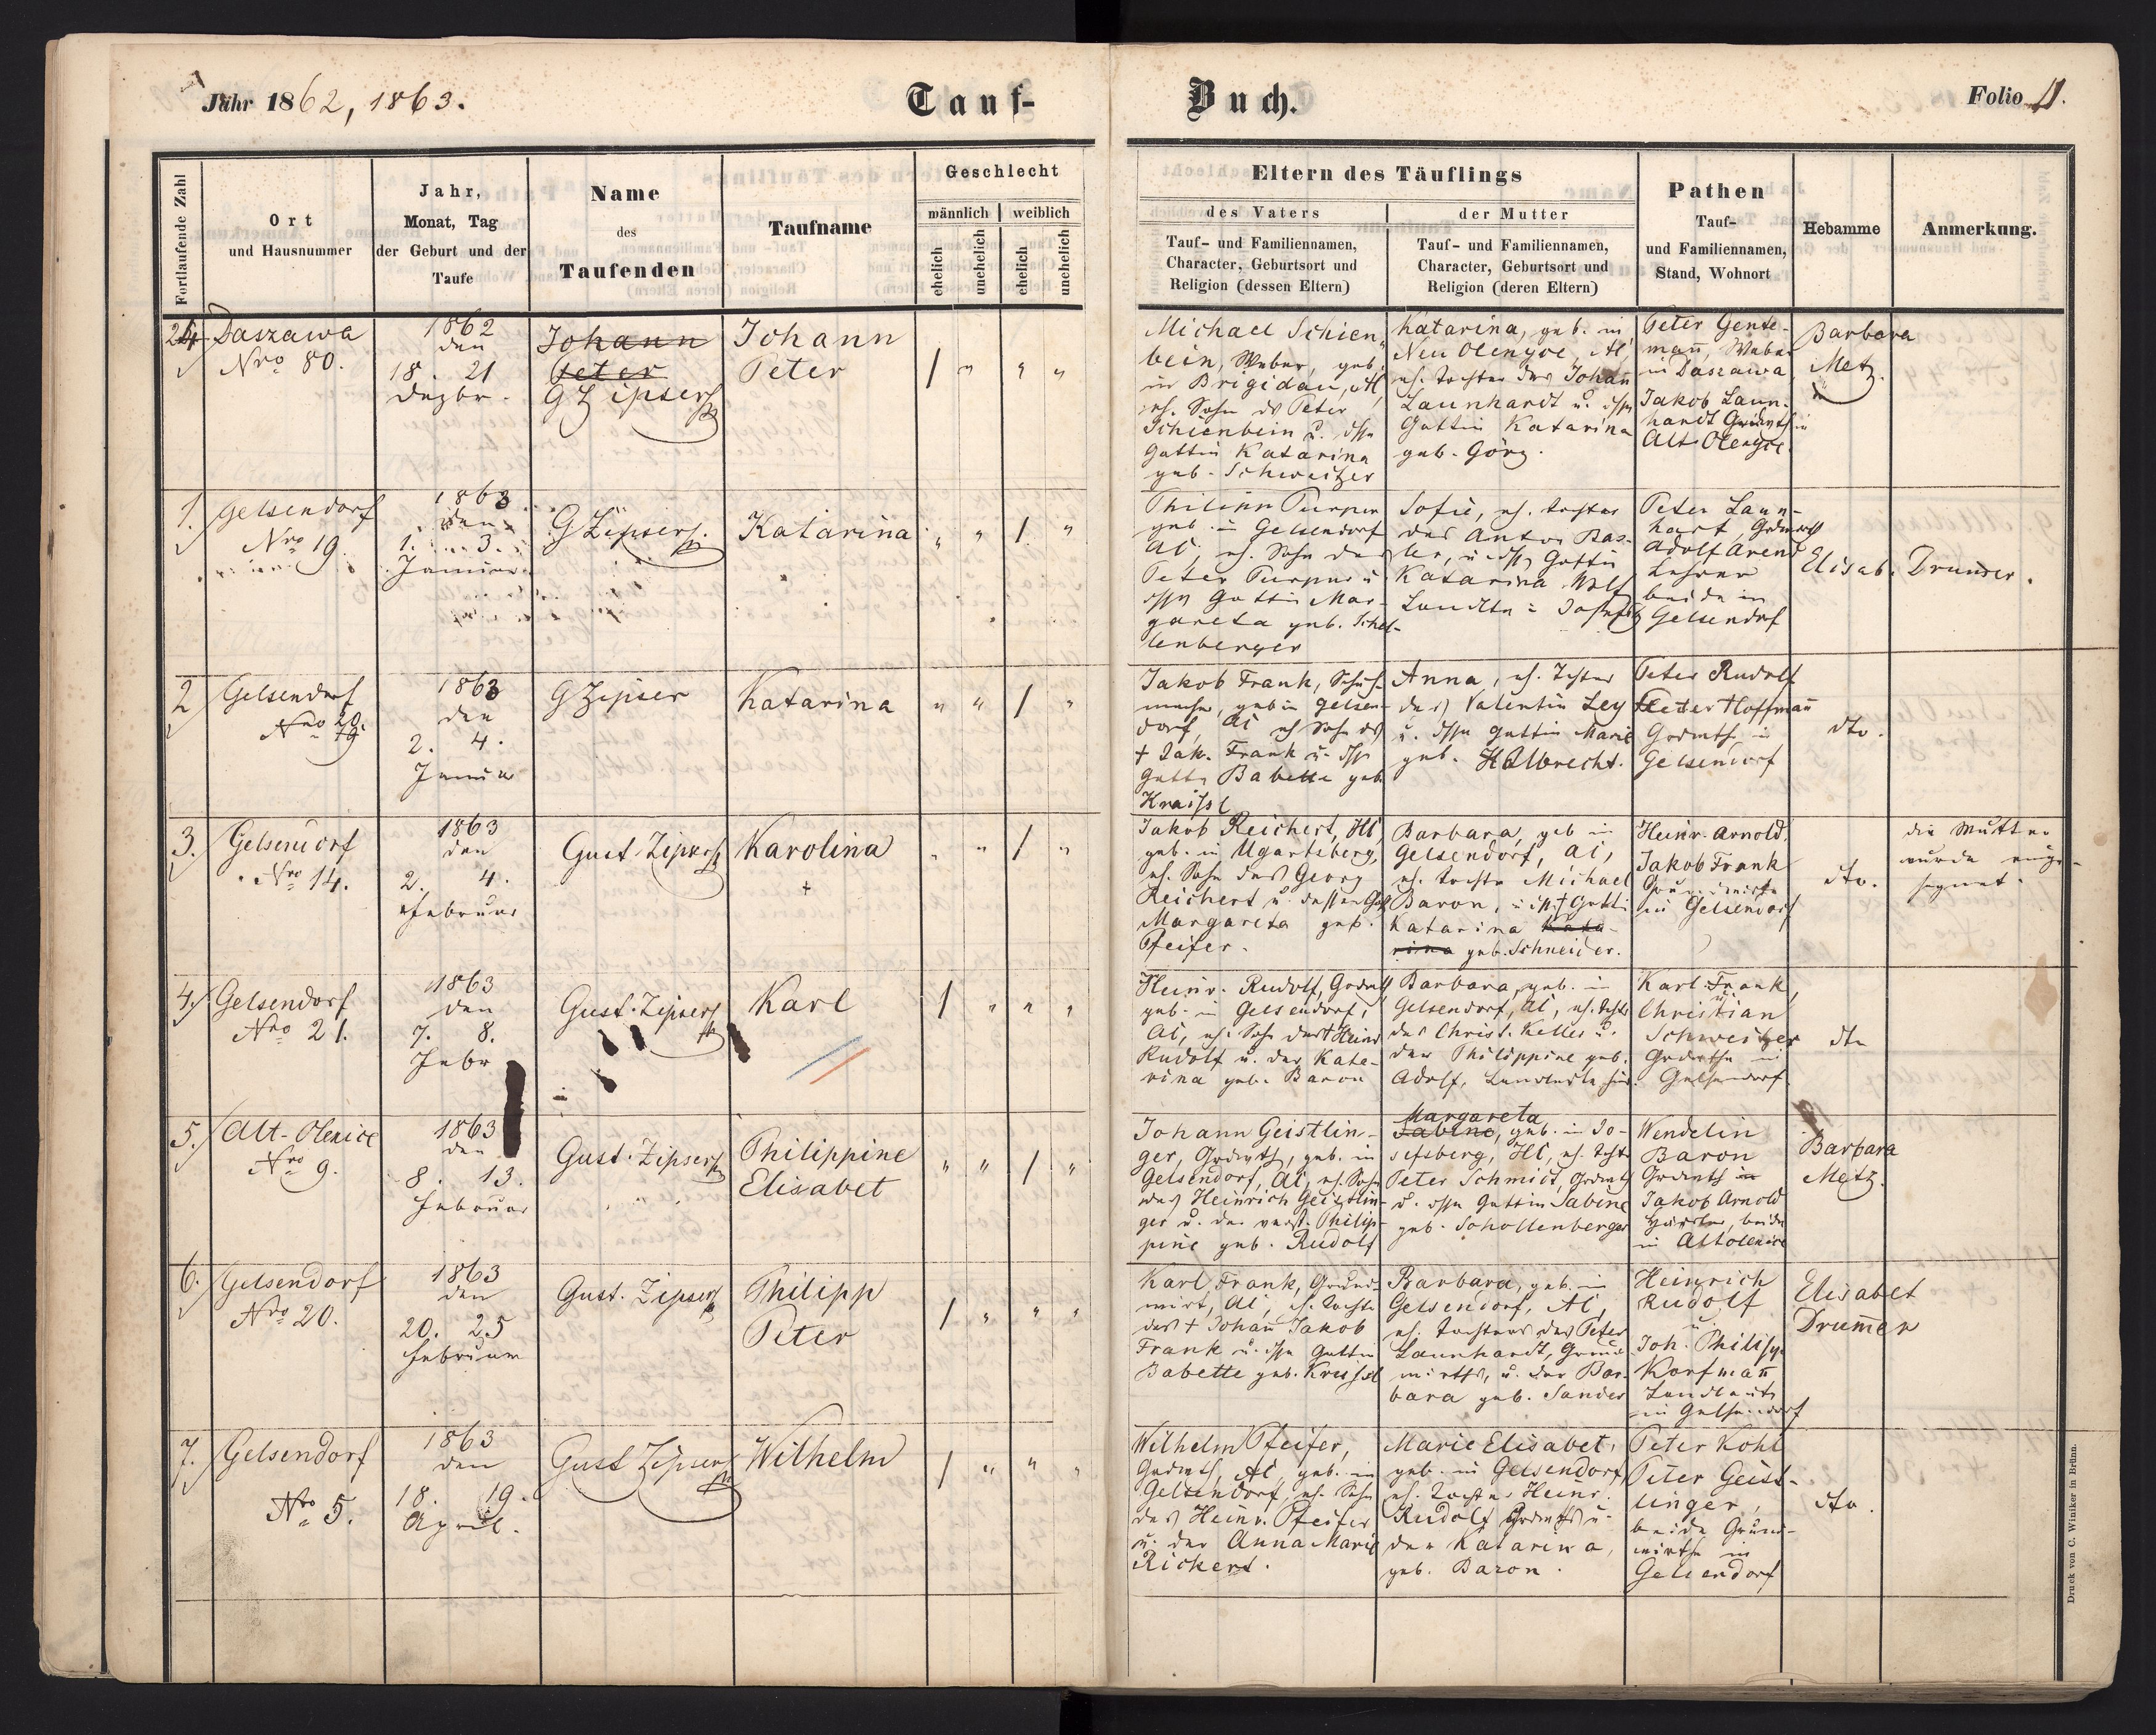 Jahr 1862, 1863.
Tauf-
Buch.
Folio 11.
Fortlaufende Zahl
Ort
und Hausnummer
Jahr,
Monat, Tag
der Geburt und der
Taufe
Name
des
Taufenden
Taufname
Geschlecht
männlich
weiblich
ehelich
unehelich
ehelich
unehelich
Eltern des Täuflings
des Vaters
Tauf- und Familiennamen,
Character, Geburtsort und
Religion (dessen Eltern)
der Mutter
Tauf- und Familiennamen,
Character, Geburtsort und
Religion (deren Eltern)
Pathen
Tauf-
und Familiennamen,
Stand, Wohnort
Hebamme
Anmerkung.
24
Daszawa
Nro 80.
1862
den
18. 21
Dezbr.
Johann
Peter
G Zipser
Johann
Peter
Michael Schien-
bein, Weber, geb.
in Brigidau, AC,
eh. Sohn des Peter
Schienbein u. dssn
Gattin Katarina
geb. Schweitzer
Katarina, geb. in
Neu Olenyce, AC,
eh. Tochter des Johan
Launhardt u. dssn
Gattin Katarina
geb. Görz.
Peter Gente-
mañ, Weber
in Daszawa
Jakob Laun-
hardt
Alt Olenyce.
Barbara
Metz.
1.
Gelsendorf
Nro 19.
1863
den
1. 3.
Januar
G Zipser
Katarina
Philipp Purper
geb. in Gelsendorf
AC, eh. Sohn des
Peter Purper u.
dssn Gattin Mar-
gareta geb. Schel-
lenberger
Sofie, eh. Tochter
des Anton Bas-
ler, u. dssn Gattin
Katarina Wolf
Landlte in Josefsbg
Peter Laun-
hart, Grdwrth
Adolf Arend
Lehrer
beide in
Gelsendorf
Elisab. Drumer.
2
Gelsendorf
Nro 20.
19
1863
den
2. 4.
Januar
G Zipser
Katarina
Jakob Frank, Schuh-
macher, geb in Gelsen-
dorf, AC eh Sohn des
+ Jak. Frank u. dssn
Gattin Babette geb
Kraissl
Anna, eh. Tochter
des Valentin Ley
u. dssn Gattin Marie
geb. Halbrecht.
Peter Rudolf
Peter Hoffmañ
Grdwrth in
Gelsendorf
dto.
3.
Gelsendorf
Nro 14.
1863
den
2. 4.
Februar
Gust. Zipser
Karolina
+
Jakob Reichert, HC,
geb. in Ugartsberg,
eh. Sohn des Georg
Reichert u. dessen Gatt
Margareta geb.
Pfeifer.
Barbara, geb in
Gelsendorf, AC,
eh. Tochter Michael
Baron, u. dssn + Gattin
Katarina Kata-
rina geb. Schneider.
Heinr. Arnold,
Jakob Frank
Grundwirthe
in Gelsendorf
dto.
die Mutter
wurde einge-
segnet.
4.
Gelsendorf
Nro 21.
1863
den
7. 8.
Febr
Gust. Zipser
Karl
Heinr. Rudolf, Grdwrth
geb. in Gelsendorf,
AC, eh. Sohn des + Heinr
Rudolf u. der Kata-
rina geb. Baron
Barbara, geb. in
Gelsendorf, AC, eh. Tochtr
des Christ. Keller u.
der Philippine geb.
Adolf, Landleute hier.
Karl Frank,
u.
Christian
Schweitzer
Grdwrthe in
Gelsendorf
dto
5.
Alt-Olenice
Nro 9.
1863
den
8. 13.
Februar
Gust. Zipser
Philippine
Elisabet
Johann Geistlin-
ger, Grdwrth, geb. in
Gelsendorf, AC, eh. Sohn
des Heinrich Geistlin-
ger u. der verst. Philip-
pine geb. Rudolf
Margareta
Sabine, geb. in Jo-
sefsberg, HC, eh. Tochtr
Peter Schmidt, Grdwrth
u. dssn Gattin Sabine
geb. Schollenberger
Wendelin
Baron
Grdwrth in
Jakob Arnold
beide
in Altolenice
Barbara
Metz.
6.
Gelsendorf
Nro 20.
1863
den
20. 25
Februar
Gust. Zipser
Philipp
Peter
Karl Frank, Grund-
wirt, AC, eh. Tochter
des + Johañ Jakob
Frank u. dssn Gattin
Babette geb. Kreissel
Barbara, geb. in
Gelsendorf, AC,
eh. Tochter des Peter
Launhardt, Grund-
wirths, u. der Bar-
bara geb. Sander
Heinrich
Rudolf
u.
Joh. Philipp
Korfmañ
Landleute
in Gelsendorf
Elisabet
Drumer
7.
Gelsendorf
Nro 5.
1863
den
18. 19.
April.
Gust Zipser
Wilhelm
Wilhelm Pfeifer,
Grdwrth, AC, geb. in
Gelsendorf, eh. Sohn
des Heinr. Pfeifer
u. der Anna Marie
Rickert.
Marie Elisabet,
geb. in Gelsendorf
eh. Tochter Heinr.
Rudolf Grdwrths u.
der Katarina,
geb. Baron.
Peter Kohl
Peter Geist-
linger,
beide Grund-
wirthe in
Gelsendorf
dto.
Druck von C. Winiker in Brünn.